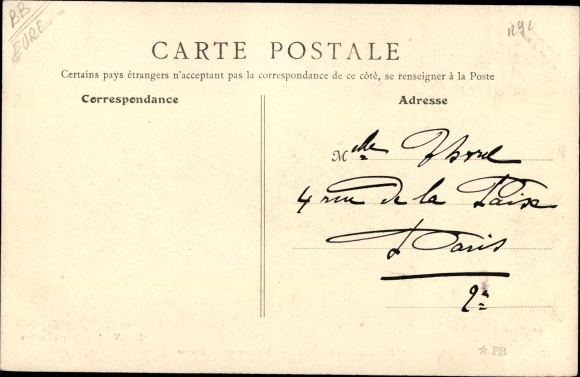 BB
EURE
1292
CARTE POSTALE
Certains pays étrangers n'acceptant pas la correspondance de ce côté, se renseigner à la Poste
Correspondance
Adresse
Mlle Thorel
4 rue de la Paix
Paris
2e
☆ PB